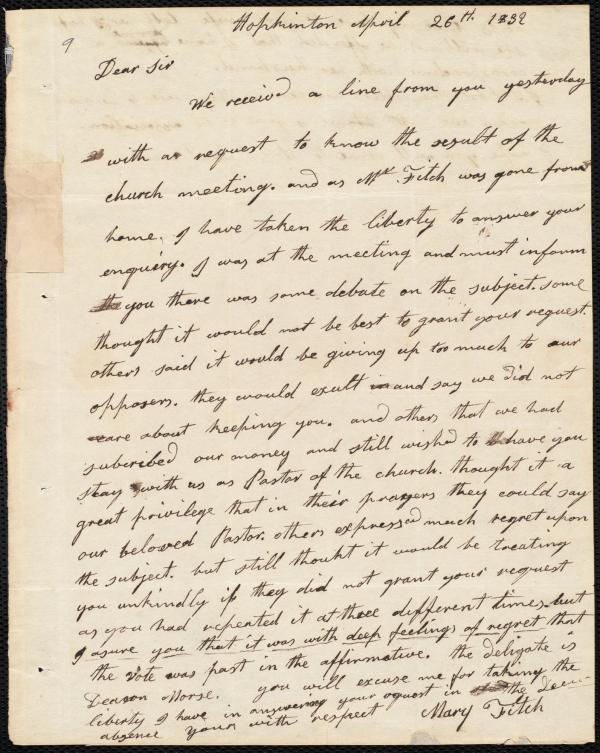 9
Hopkinton April 26th. 1832
Dear Sir
We received a line from you yesterday
with a request to know the result of the
church meeting. and as Mr. Fitch was gone from
home, I have taken the liberty to answer your
enquiry. I was at the meeting and must inform
you there was some debate on the subject. some
thought it would not be best to grant your request.
others said it would be giving up too much to our
opposers. they would exult and say we did not
care about keeping you. and others that we had
subcribed our money and still wished to have you
stay with us as Pastor of the church. thought it a
great privilege that in their prayers they could say
our beloved Pastor. others expressed much regret upon
the subject. but still thouht it would be treating
you unkindly if they did not grant your request
as you had repeated it at three different times. but
I asure you that it was with deep feelings of regret that
the vote was past in the affirmative. the deligate is
Deacon Morse. you will excuse me for taking the
liberty I have in answering your request in the
absence yours with respect Mary Fitch